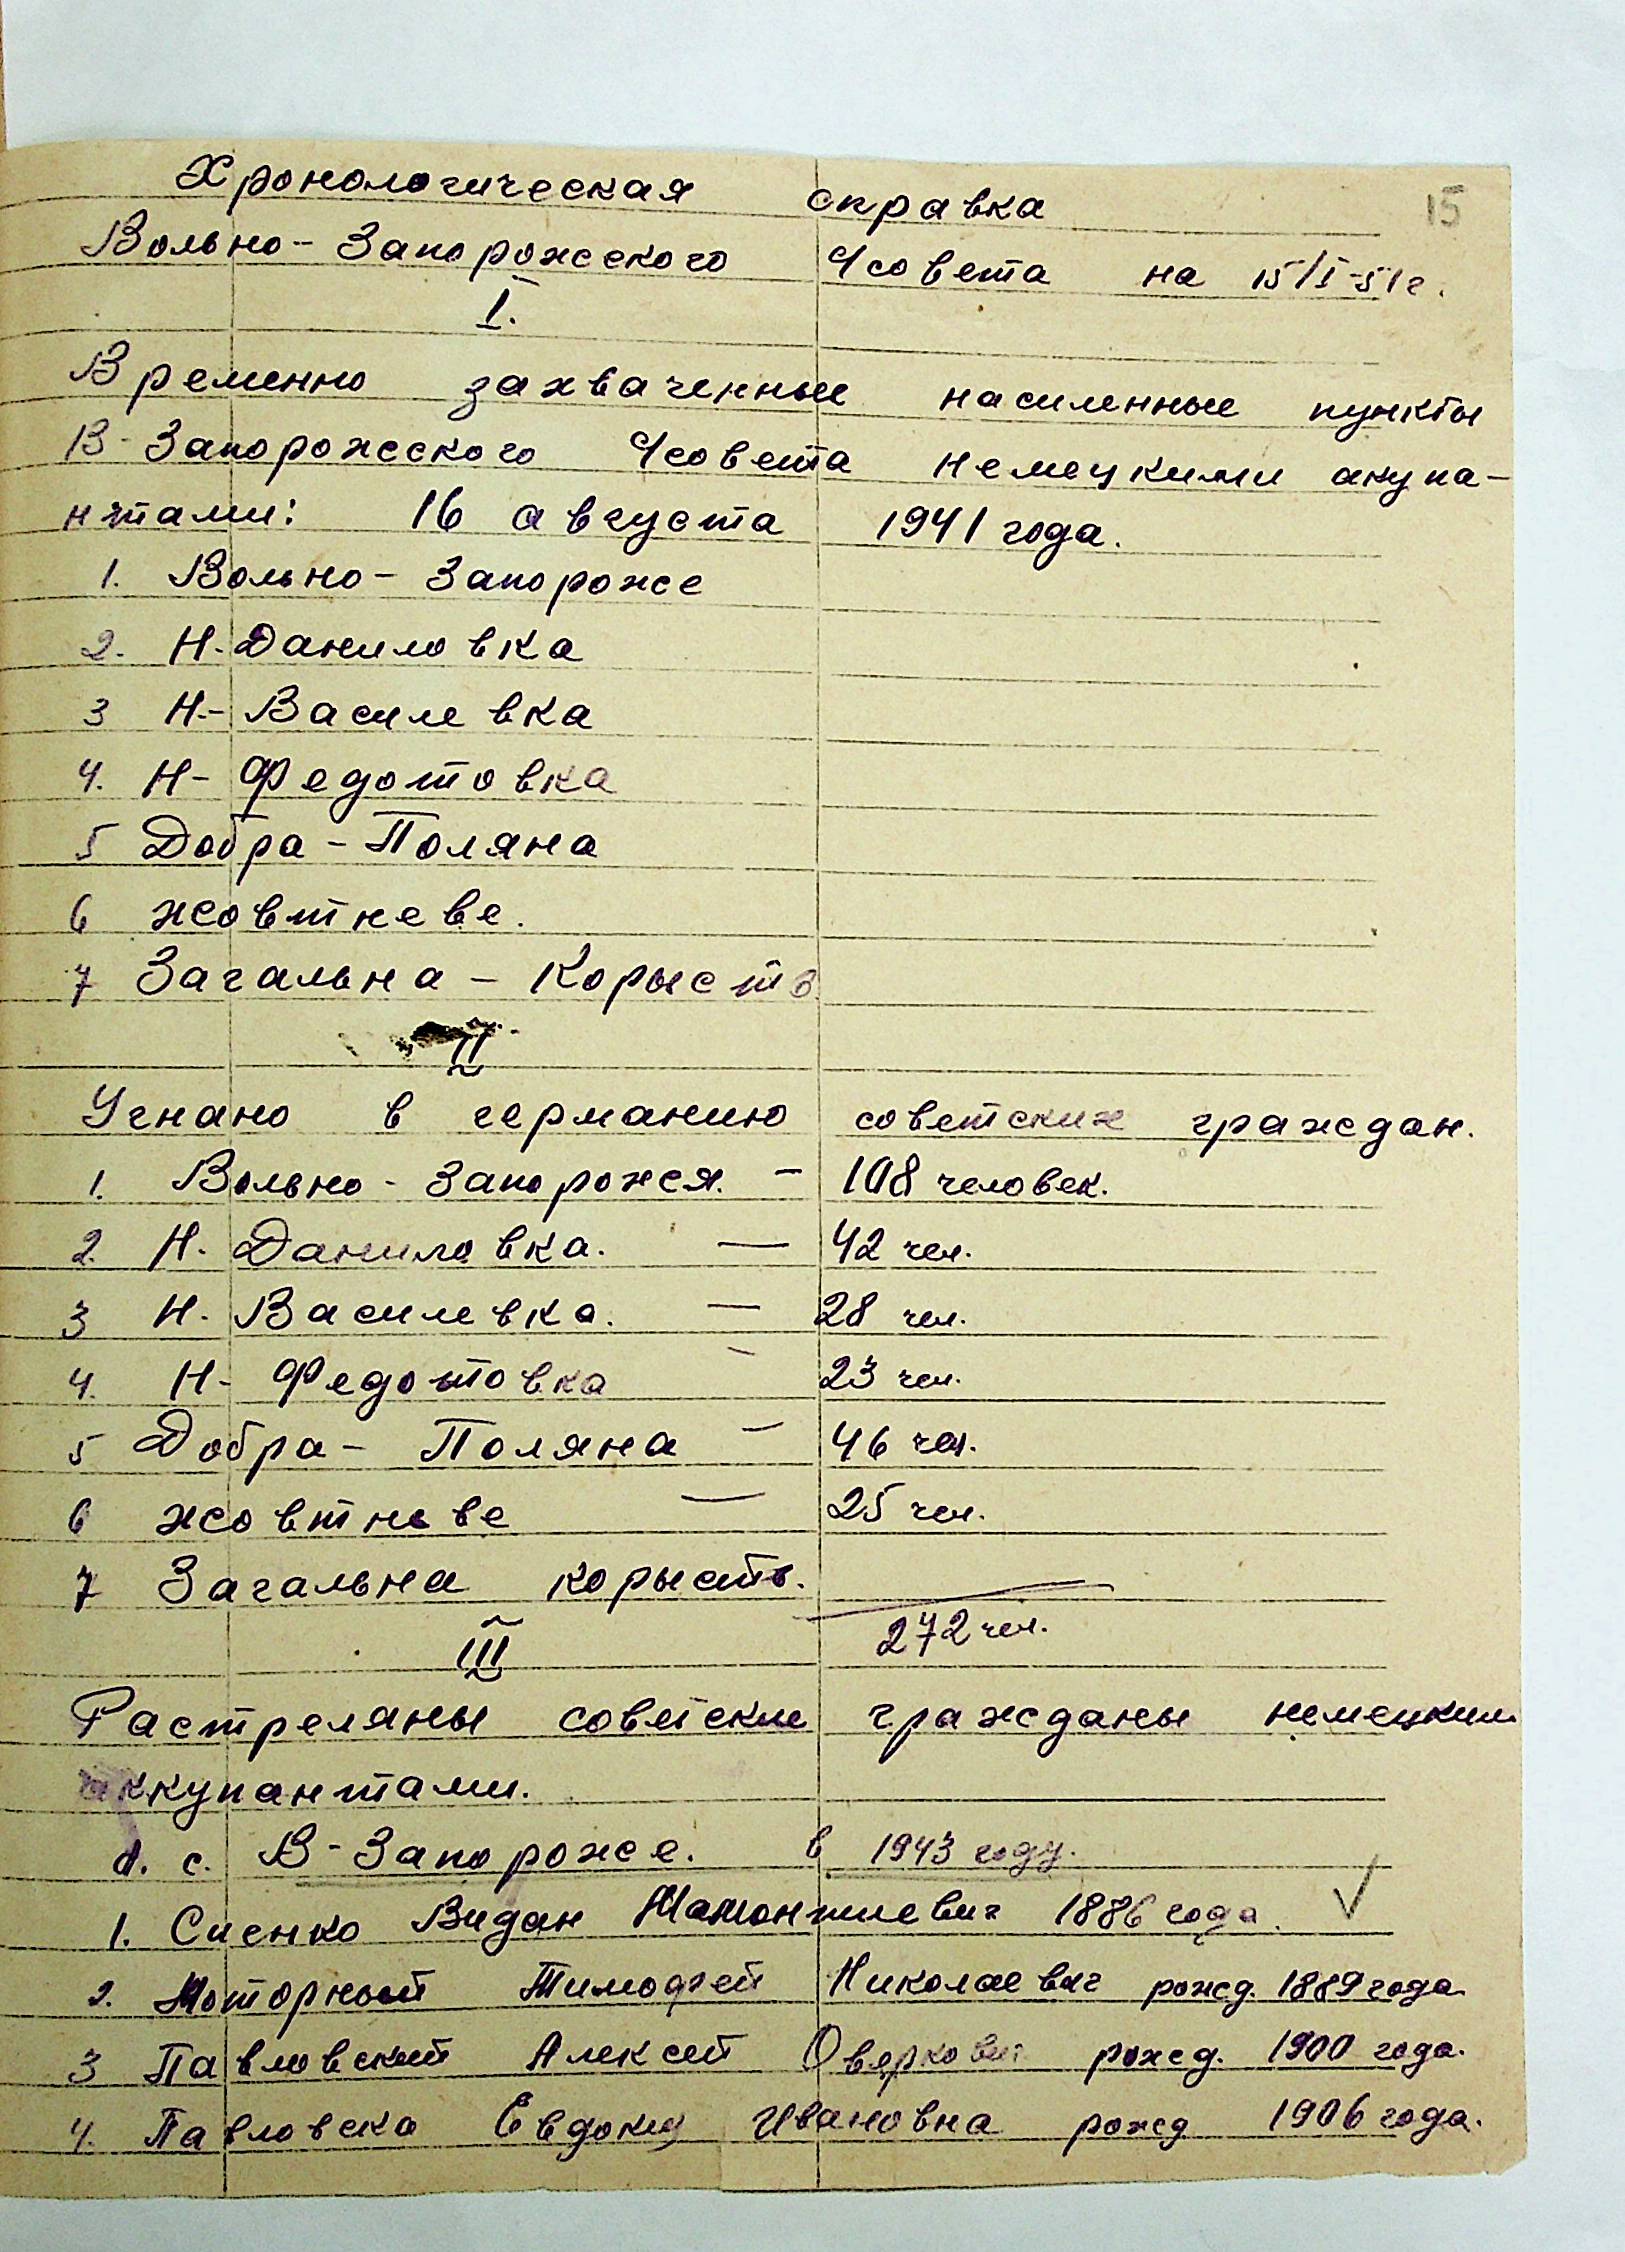 15
Хронологическая справка
Вольно-Запорожского с/совета на 15/I-51г.
I.
Временно захваченные насиленные пункты
В-Запорожского с/совета немецкими акупа-
нтами: 16 августа 1941 года.
1. Вольно-Запороже
2. Н-Даниловка
3 Н-Василевка
4. Н-Федотовка
5 Добра-Поляна
6 жовтневе.
7 Загальна-Корысть
II
Угнано в германию советских граждан.
1. Вольно-Запорожея. - 108 человек.
2. Н. Даниловка. — 42 чел.
3 Н. Василевка. — 28 чел.
4. Н-Федотовка - 23 чел.
5 Добра-Поляна - 46 чел.
6 жовтневе — 25 чел.
7 Загальна корысть.
272 чел.
III
Растреляны советские гражданы немецкими
аккупантами.
с. В-Запороже. в 1943 году.
1. Сиенко 1886 года.
2. Моторный Тимофей Николаевич рожд. 1889 года.
3 Павловский Алексей Оверкович рожд. 1900 года.
4. Павловска Евдокия Ивановна рожд 1906 года.